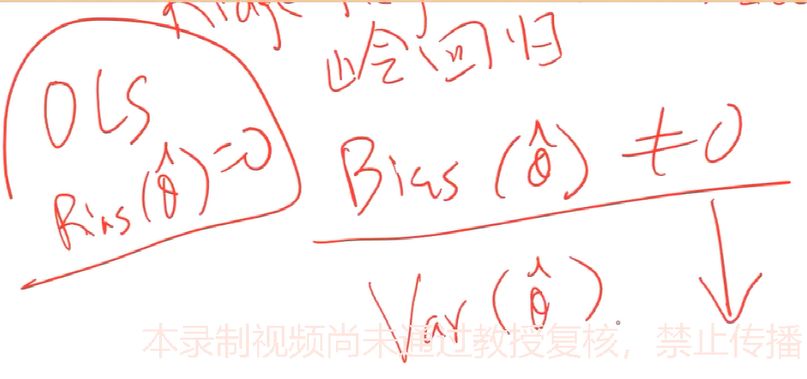 Ridge
岭回归
OLS
Bias(θ̂)=0
Bias(θ̂)≠0
Var(θ̂).↓
本录制视频尚未通过教授复核，禁止传播